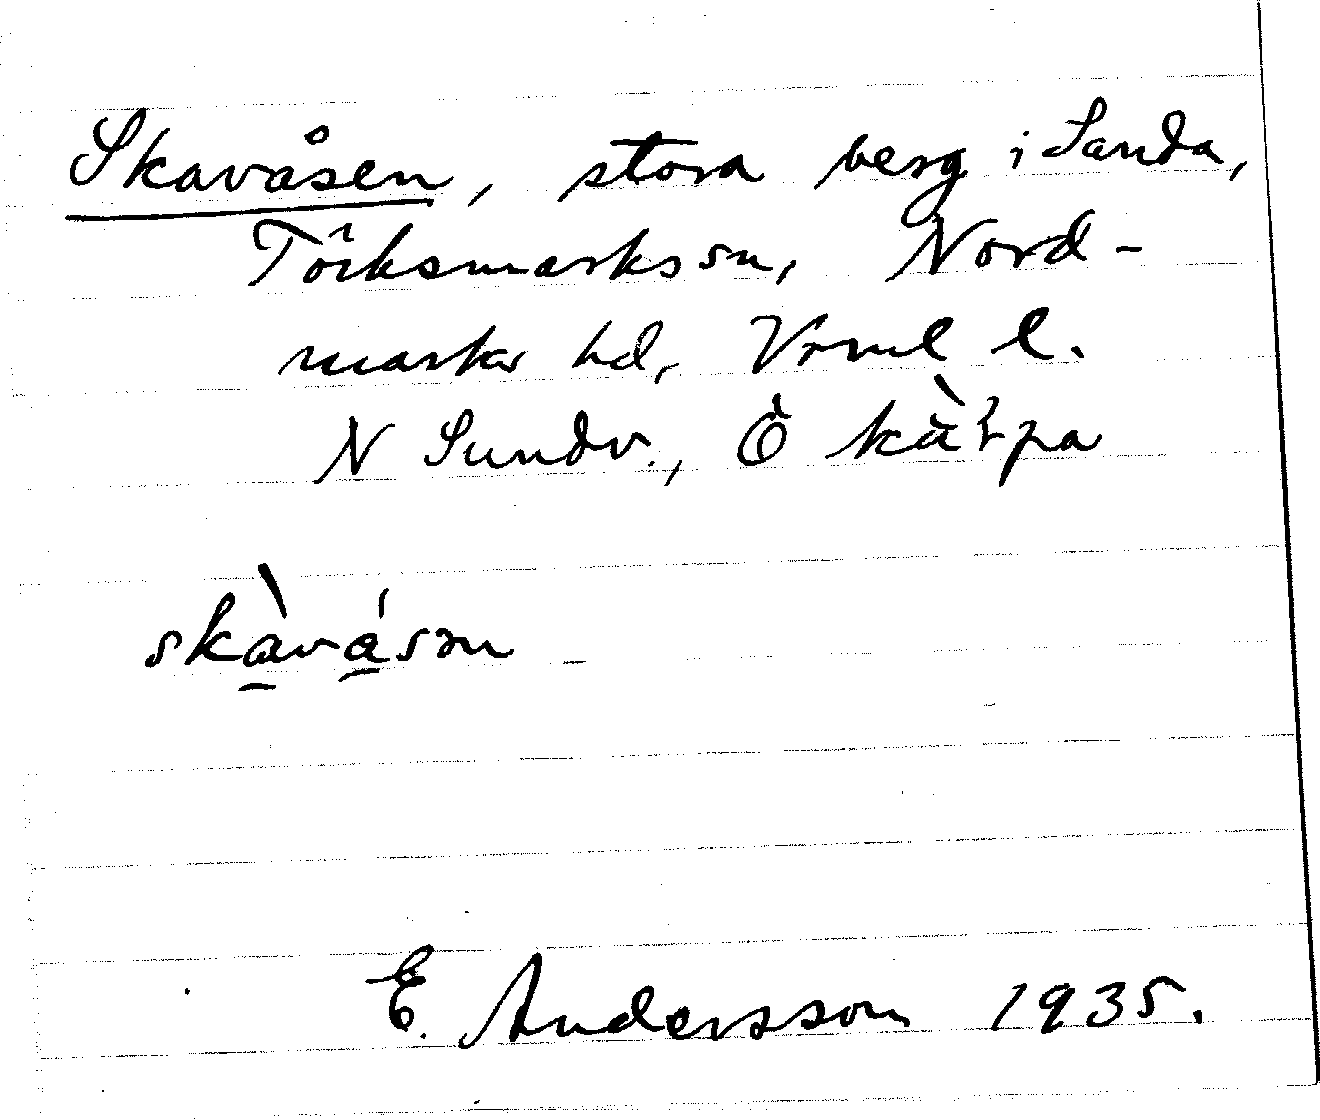 Skavåsen, stora berg i Sanda,
Töcksmarks sn, Nord-
marks hd, Vrml l.
N Sundv., Ö
skàvásən
E. Andersson 1935.